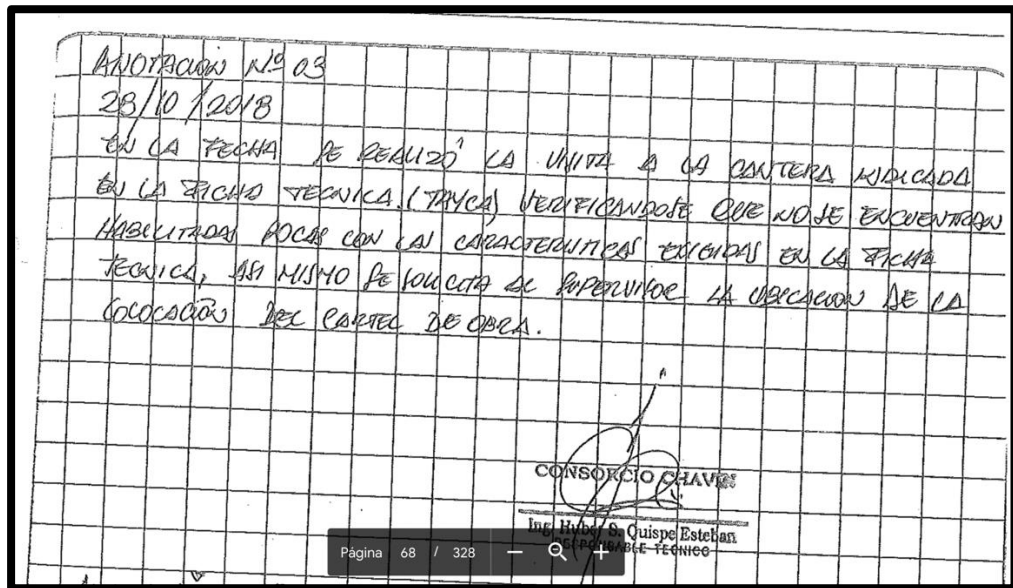 ANOTACION Nº 03
28/10/2018
EN LA FECHA SE REALIZÓ LA VISITA A LA CANTERA INDICADA
EN LA FICHA TECNICA. (TAYCA) VERIFICANDOSE QUE NO SE ENCUENTRAN
HABILITADAS ROCAS CON LAS CARACTERISTICAS EXIGIDAS EN LA FICHA
TECNICA, ASI MISMO SE SOLICITA AL SUPERVISOR LA UBICACION DE LA
COLOCACIÓN DEL CARTEL DE OBRA.
CONSORCIO CHAVIN
Ing. Huber S. Quispe Esteban
RESPONSABLE TECNICO
Página 68 / 328